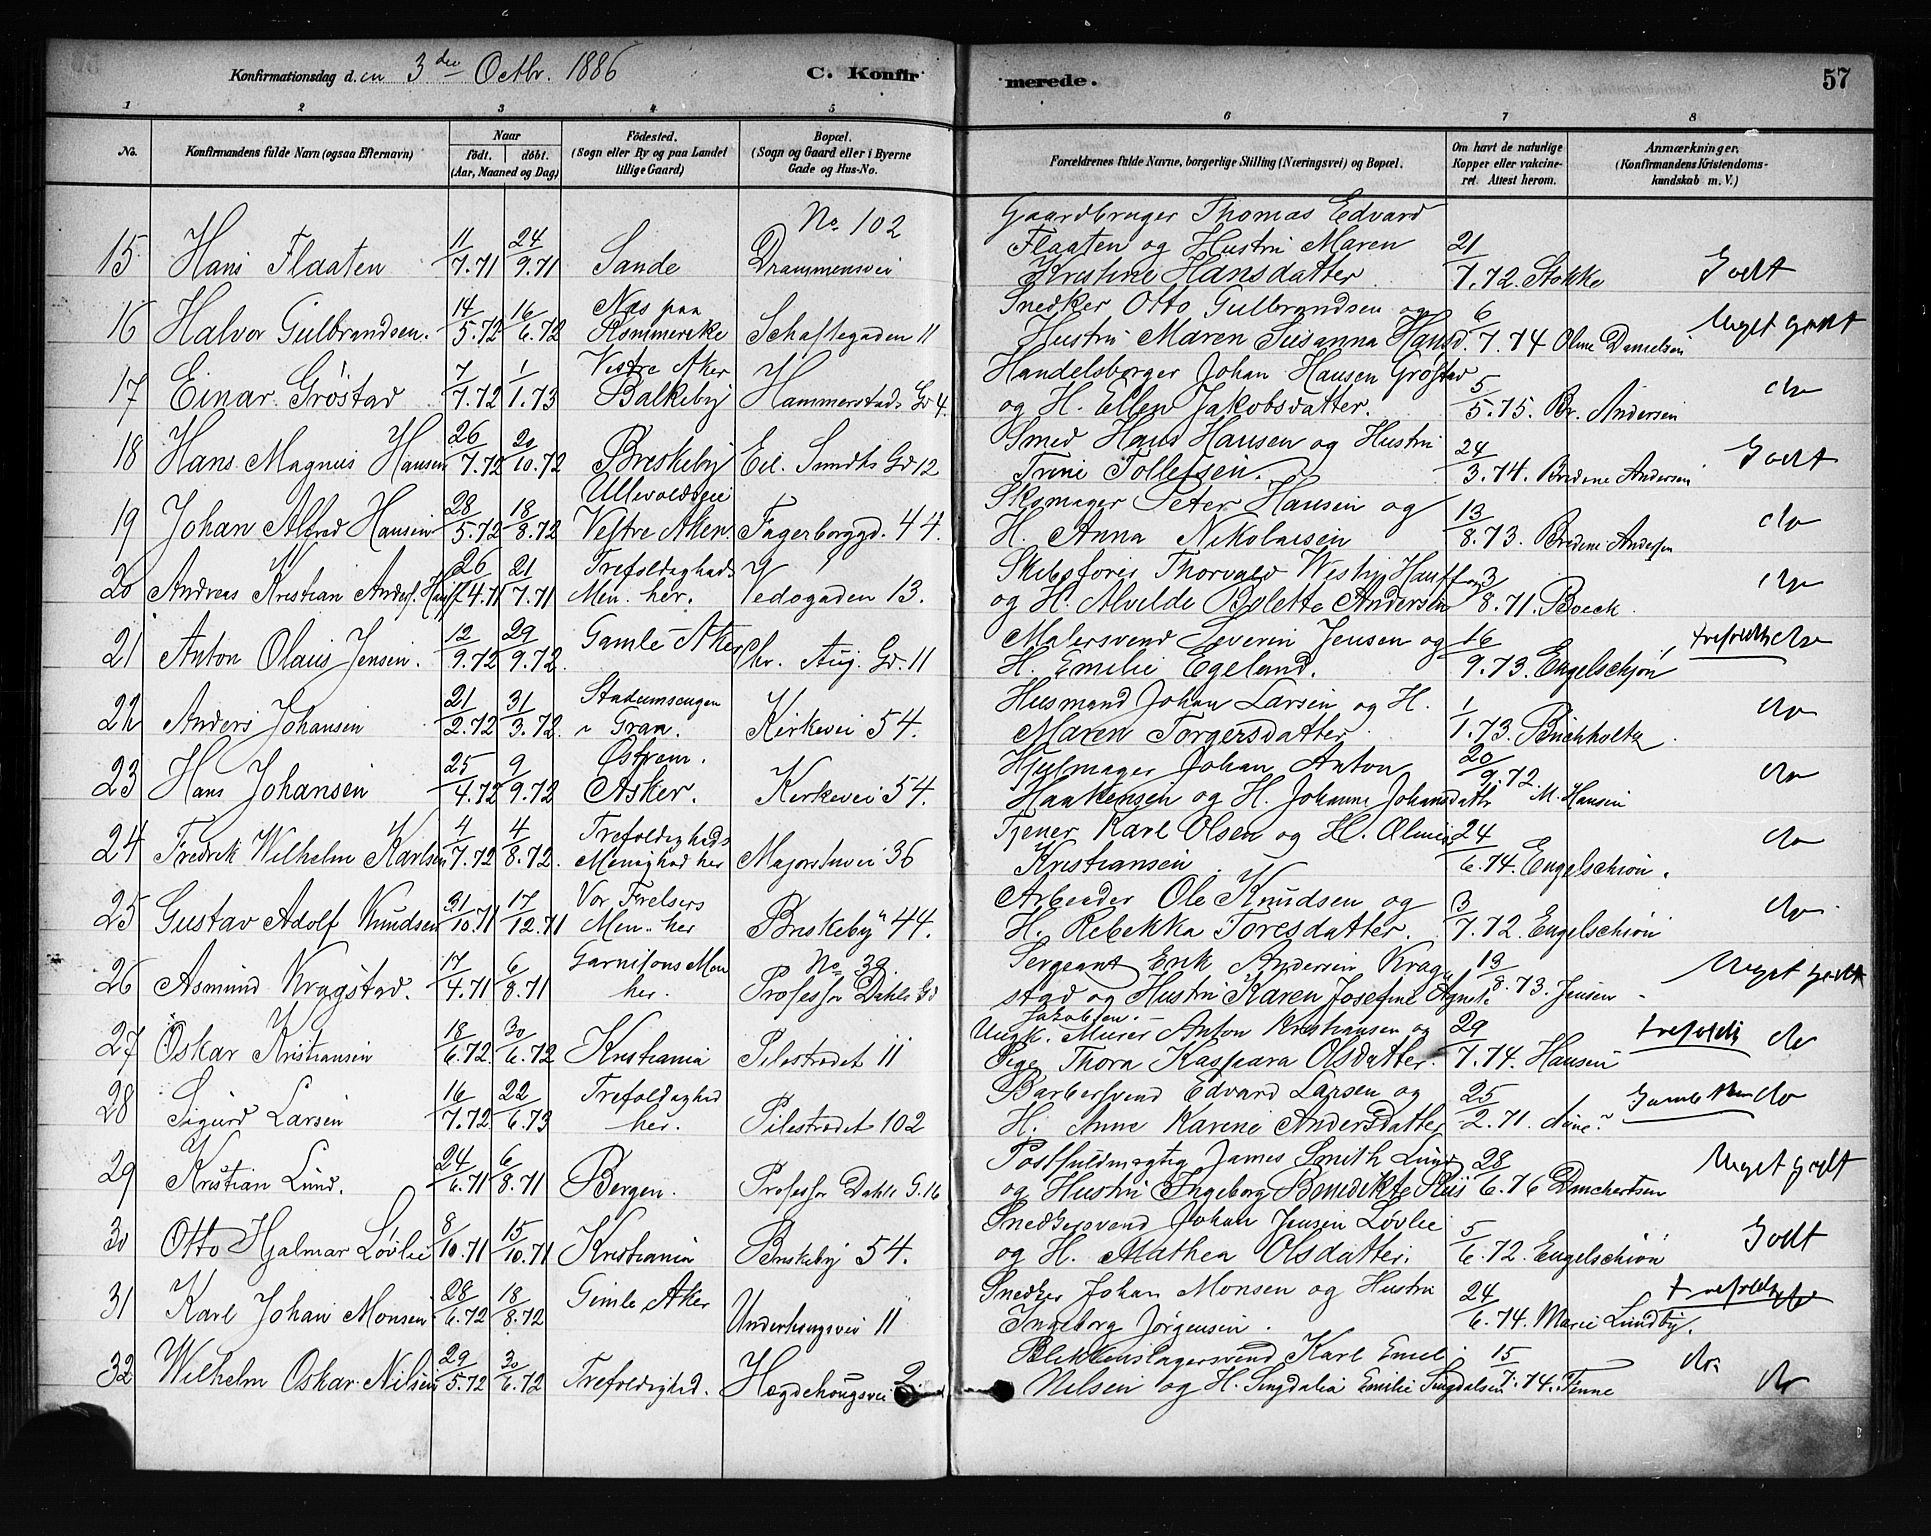 Konfirmationsdag d. en 3 die Octbr. 1886 C. Konfirmerede. 57
1 2 3 4 5 6 7 8
No. Konfirmandens fulde Navn (ogsaa Efternavn) Naar født. døbt. (Aar, Maaned og Dag) Fødested. (Sogn eller By og paa Landet tillige Gaard) Bopæl. (Sogn og Gaard eller i Byerne Gade og Hus-No. Forældrenes fulde Navne, borgerlige Stilling (Næringsvei) og Bopæl. Om havt de naturlige Kopper eller vakcineret. Attest herom. Anmærkninger. (Konfirmandens Kristendomskundskab m. V.)
No. 102 Gaardbruger Thomas Edvard
15 Hans Flaaten 11/7.71 24/9.71 Sande Drammensvei Flaaten og Hustru Maren Kristine Hansdatter 21/7.72. Stokke Godt
16 Halvor Gulbrandsen. 14/5.72 16/6.72 Næs paa Rommerike Schaftegaden 11 Snedker Otto Gulbrandsen og Hustru Maren Susanna Hansd. 6/7.74 Oline Danielsen Meget godt
17 Einar Grøstad 7/7.72 1/1.73 Vestre Aker Balkeby Hammerstads Gd 4. Handelsborger Johan Hansen Grøstad og H. Ellen Jakobsdatter. 5/5.75. Br. Andersen do
18 Hans Magnus Hansen 26/7.72 20/10.72 Briskeby Eil. Sundts Gd 12 Smed Hans Hansen og Hustru Trine Tollefsen. 24/3.74. Bredine Andersen Godt
19 Johan Alfred Hansen 28/5.72 18/8.72 Ullevoldsvei Vestre Aker. Fagerborggd. 44. Skomager Peter Hansen og H. Anna Nikolaisen 13/8.73. Bredine Andersen do
20 Andreas Kristian Anders. Hauff 26/4.71 21/7.71 Trefoldigheds Men. her. Vedogaden 13. Skibsfører Thorvald Westy Hauff og H. Alvilde Bolette Andersen 3/8.71. Boeck. do
21 Anton Olaus Jensen. 12/9.72 29/9.72. Gamle Aker Chr. Aug. Gd. 11 Malersvend Severin Jensen og H. Emilie Egeland. 16/9.73. Engelschjøn trefoldh do
22 Anders Johansen 21/2.72 31/3.72. Stadumseugen i Gran. Kirkevei 54. Husmand Johan Larsen og H. Maren Torgersdatter 1/1.73. Buchholtz do
23 Hans Johansen 25/4.72 9/9.72 Østrem. Asker. Kirkevei 54. Hjulmager Johan Anton Haakensen og H. Johanne Johansdatter 20/9.72. M. Hansen do
24 Fredrik Wilhelm Karlsen 4/7.72 4/8.72. Trefoldigheds Menighed her Majorstuvei 36 Tjener Karl Olsen og H. Olava Kristiansen 24/6.74. Engelschiøn. do
25 Gustav Adolf Knudsen 31/10.71 17/12.71 Vor Frelsers Men. her Briskeby 44. Arbeider Ole Knudsen og H. Rebekka Toresdatter. 3/7.72. Engelschiøn do
26 Asmund Kragstad. 17/4.71 6/8.71 Garnisons Men her. No 39. Professor Dahls Gd Sergeant Erik Andersen Kragstad og Hustru Karen Josefine Agnete Jakobsen. 13/8.73. Jensen Meget godt
27 Oskar Kristiansen 18/6.72 30/6.72 Kristiania Pilestrædet 11 Ungk. Murer Anton Kristiansen og Pige Thora Kaspara Olsdatter. 29/7.74. Hansen trefoldi do
28 Sigurd Larsen 16/7.72 22/6.73 Trefoldighed her. Pilestrædet 102 Barbersvend Edvard Larsen og H. Anne Karine Andersdatter 25/2.71. Gamle Aker do
29 Kristian Lund. 24/6.71 6/8.71 Bergen. Professor Dahls G. 16 Postfuldmægtig James Smith Lund og Hustru Ingeborg Benedikte 28/6.76 Danchertsen Meget godt
30 Otto Hjalmar Løvlie 8/10.71 15/10.71 Kristiania Briskeby 54. Snedkersvend Johan Jensen Løvlie og H. Mathea Olsdatter. 5/6.72. Engelschiøn Godt
31 Karl Johan Monsen 28/6.72 18/8.72 Gimle Aker Underhaugsvei 11 Snedker Johan Monsen og Hustru Ingeborg Jørgensen. 24/6.74. Marie Lundby. trefoldh do
32 Wilhelm Oskar Nilsen 29/5.72 30/6.72 Trefoldighed. Hægdehougsvei 2. Blikkenslagersvend Karl Emil Nilsen og H. Singdalia Emilie Singdalsen 15/7.74. Finne do. do